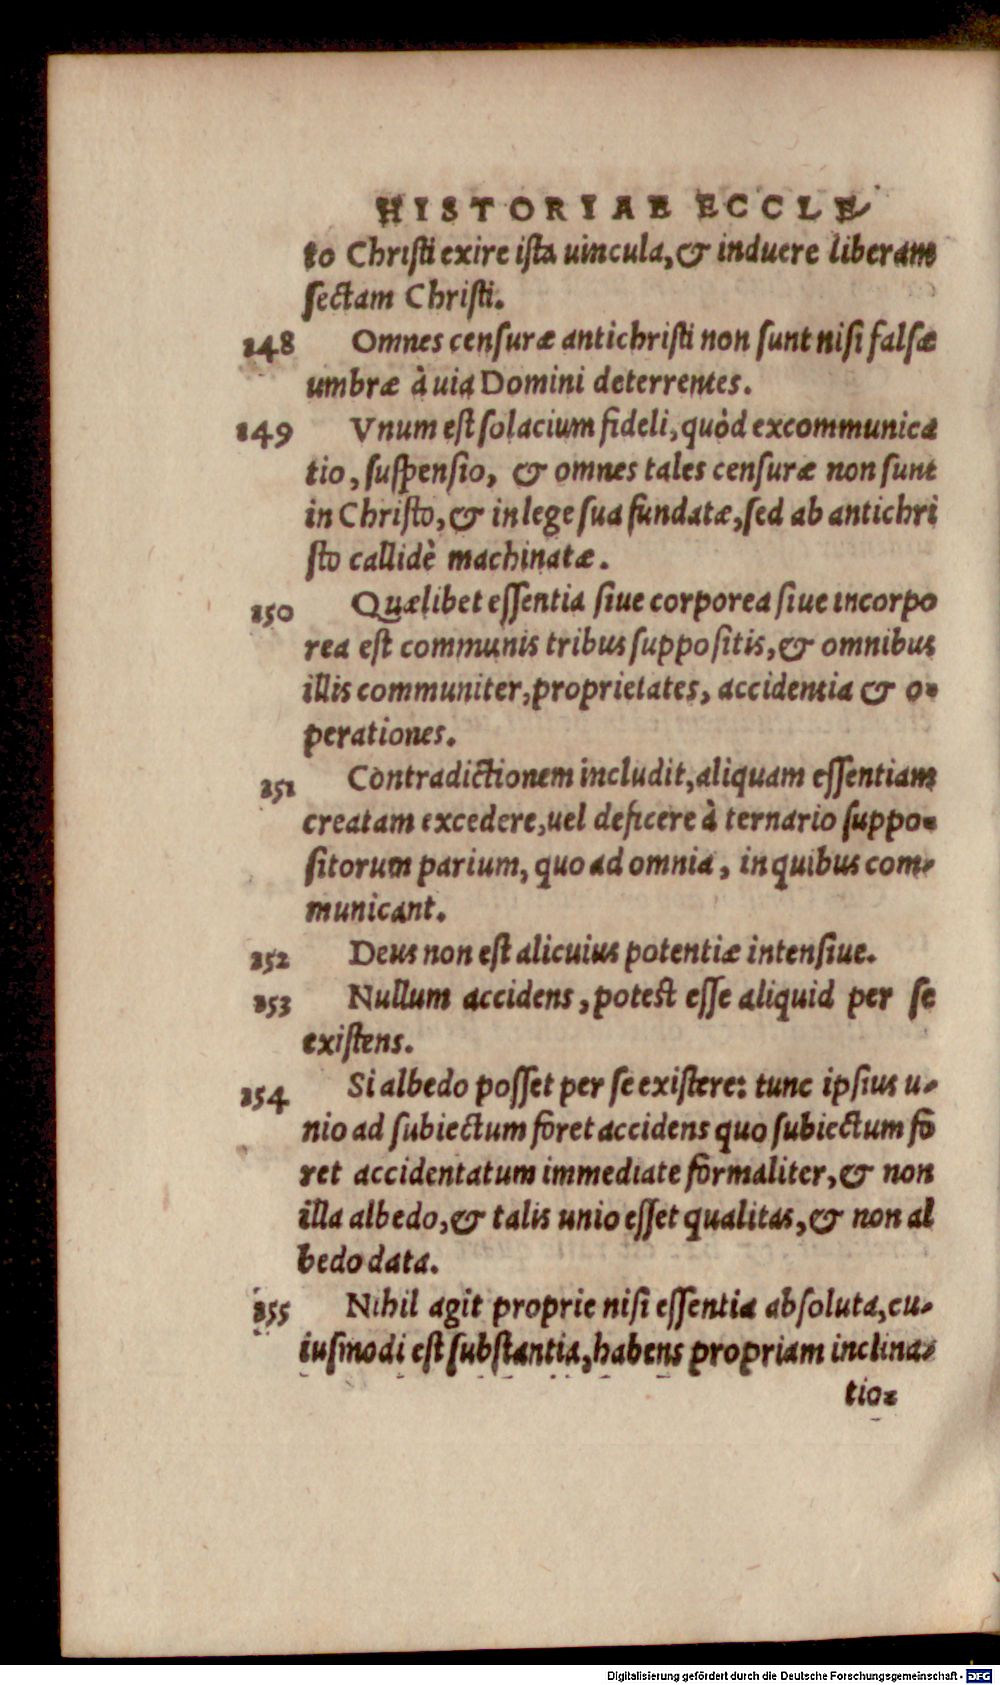 HISTORIAE ECCLE-
to Christi exire ista uincula, & induere liberam
sectam Christi.
248 Omnes censuræ antichristi non sunt nisi falsæ
umbræ à uia Domini deterrentes.
249 Vnum est solacium fideli, quòd excommunica
tio, suspensio, & omnes tales censuræ non sunt
in Christo, & in lege sua fundatæ, sed ab antichri
sto callidè machinatæ.
250 Quælibet essentia siue corporea siue incorpo
rea est communis tribus suppositis, & omnibus
illis communiter, proprietates, accidentia & o-
perationes.
251 Contradictionem includit, aliquam essentiam
creatam excedere, uel deficere à ternario suppo-
sitorum parium, quo ad omnia, in quibus com-
municant.
252 Deus non est alicuius potentiæ intensiue.
253 Nullum accidens, potest esse aliquid per se
existens.
254 Si albedo posset per se existere: tunc ipsius u-
nio ad subiectum foret accidens quo subiectum fo
ret accidentatum immediate formaliter, & non
illa albedo, & talis unio esset qualitas, & non al
bedo data.
255 Nihil agit proprie nisi essentia absoluta, cu-
iusmodi est substantia, habens propriam inclina-
tio-
Digitalisierung gefördert durch die Deutsche Forschungsgemeinschaft - DFG